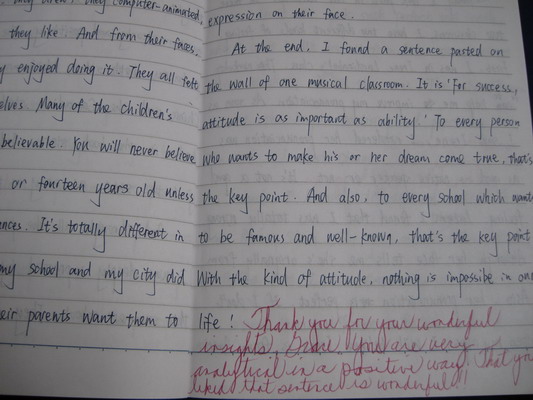 they computer-animated,
they like. And from their faces,
enjoyed doing it. They all felt
Many of the children's
believable. You will never believe
or fourteen years old unless
It's totally different in
school and my city did
parents want them to
expression on their face.
At the end, I found a sentence pasted on
the wall of one musical classroom. It is "For success,
attitude is as important as ability." To every person
who wants to make his or her dream come true, that's
the key point. And also, to every school which want
to be famous and well-known, that's the key point
With the kind of attitude, nothing is impossibe in our
life!
Thank you for your wonderful
insights, you are very
analytical in a positive way! That you
liked that sentence is wonderful!!